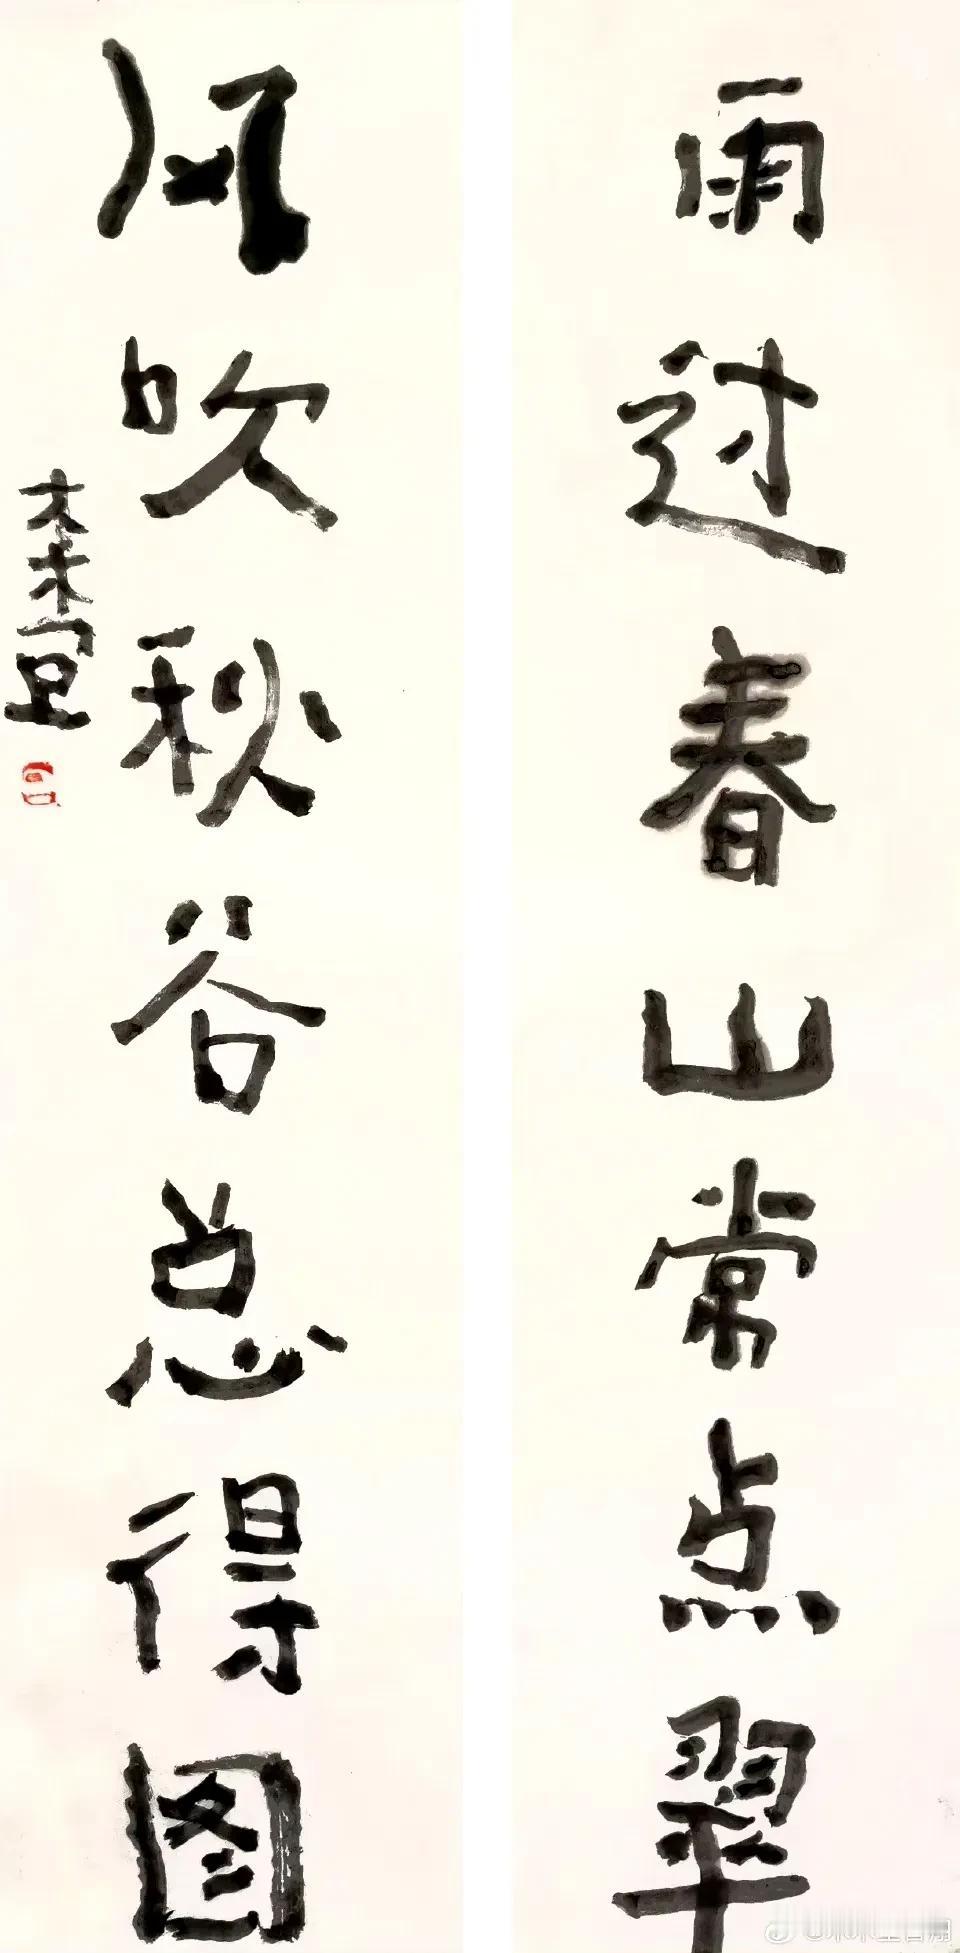 雨过春山常点翠
风吹秋谷总得图